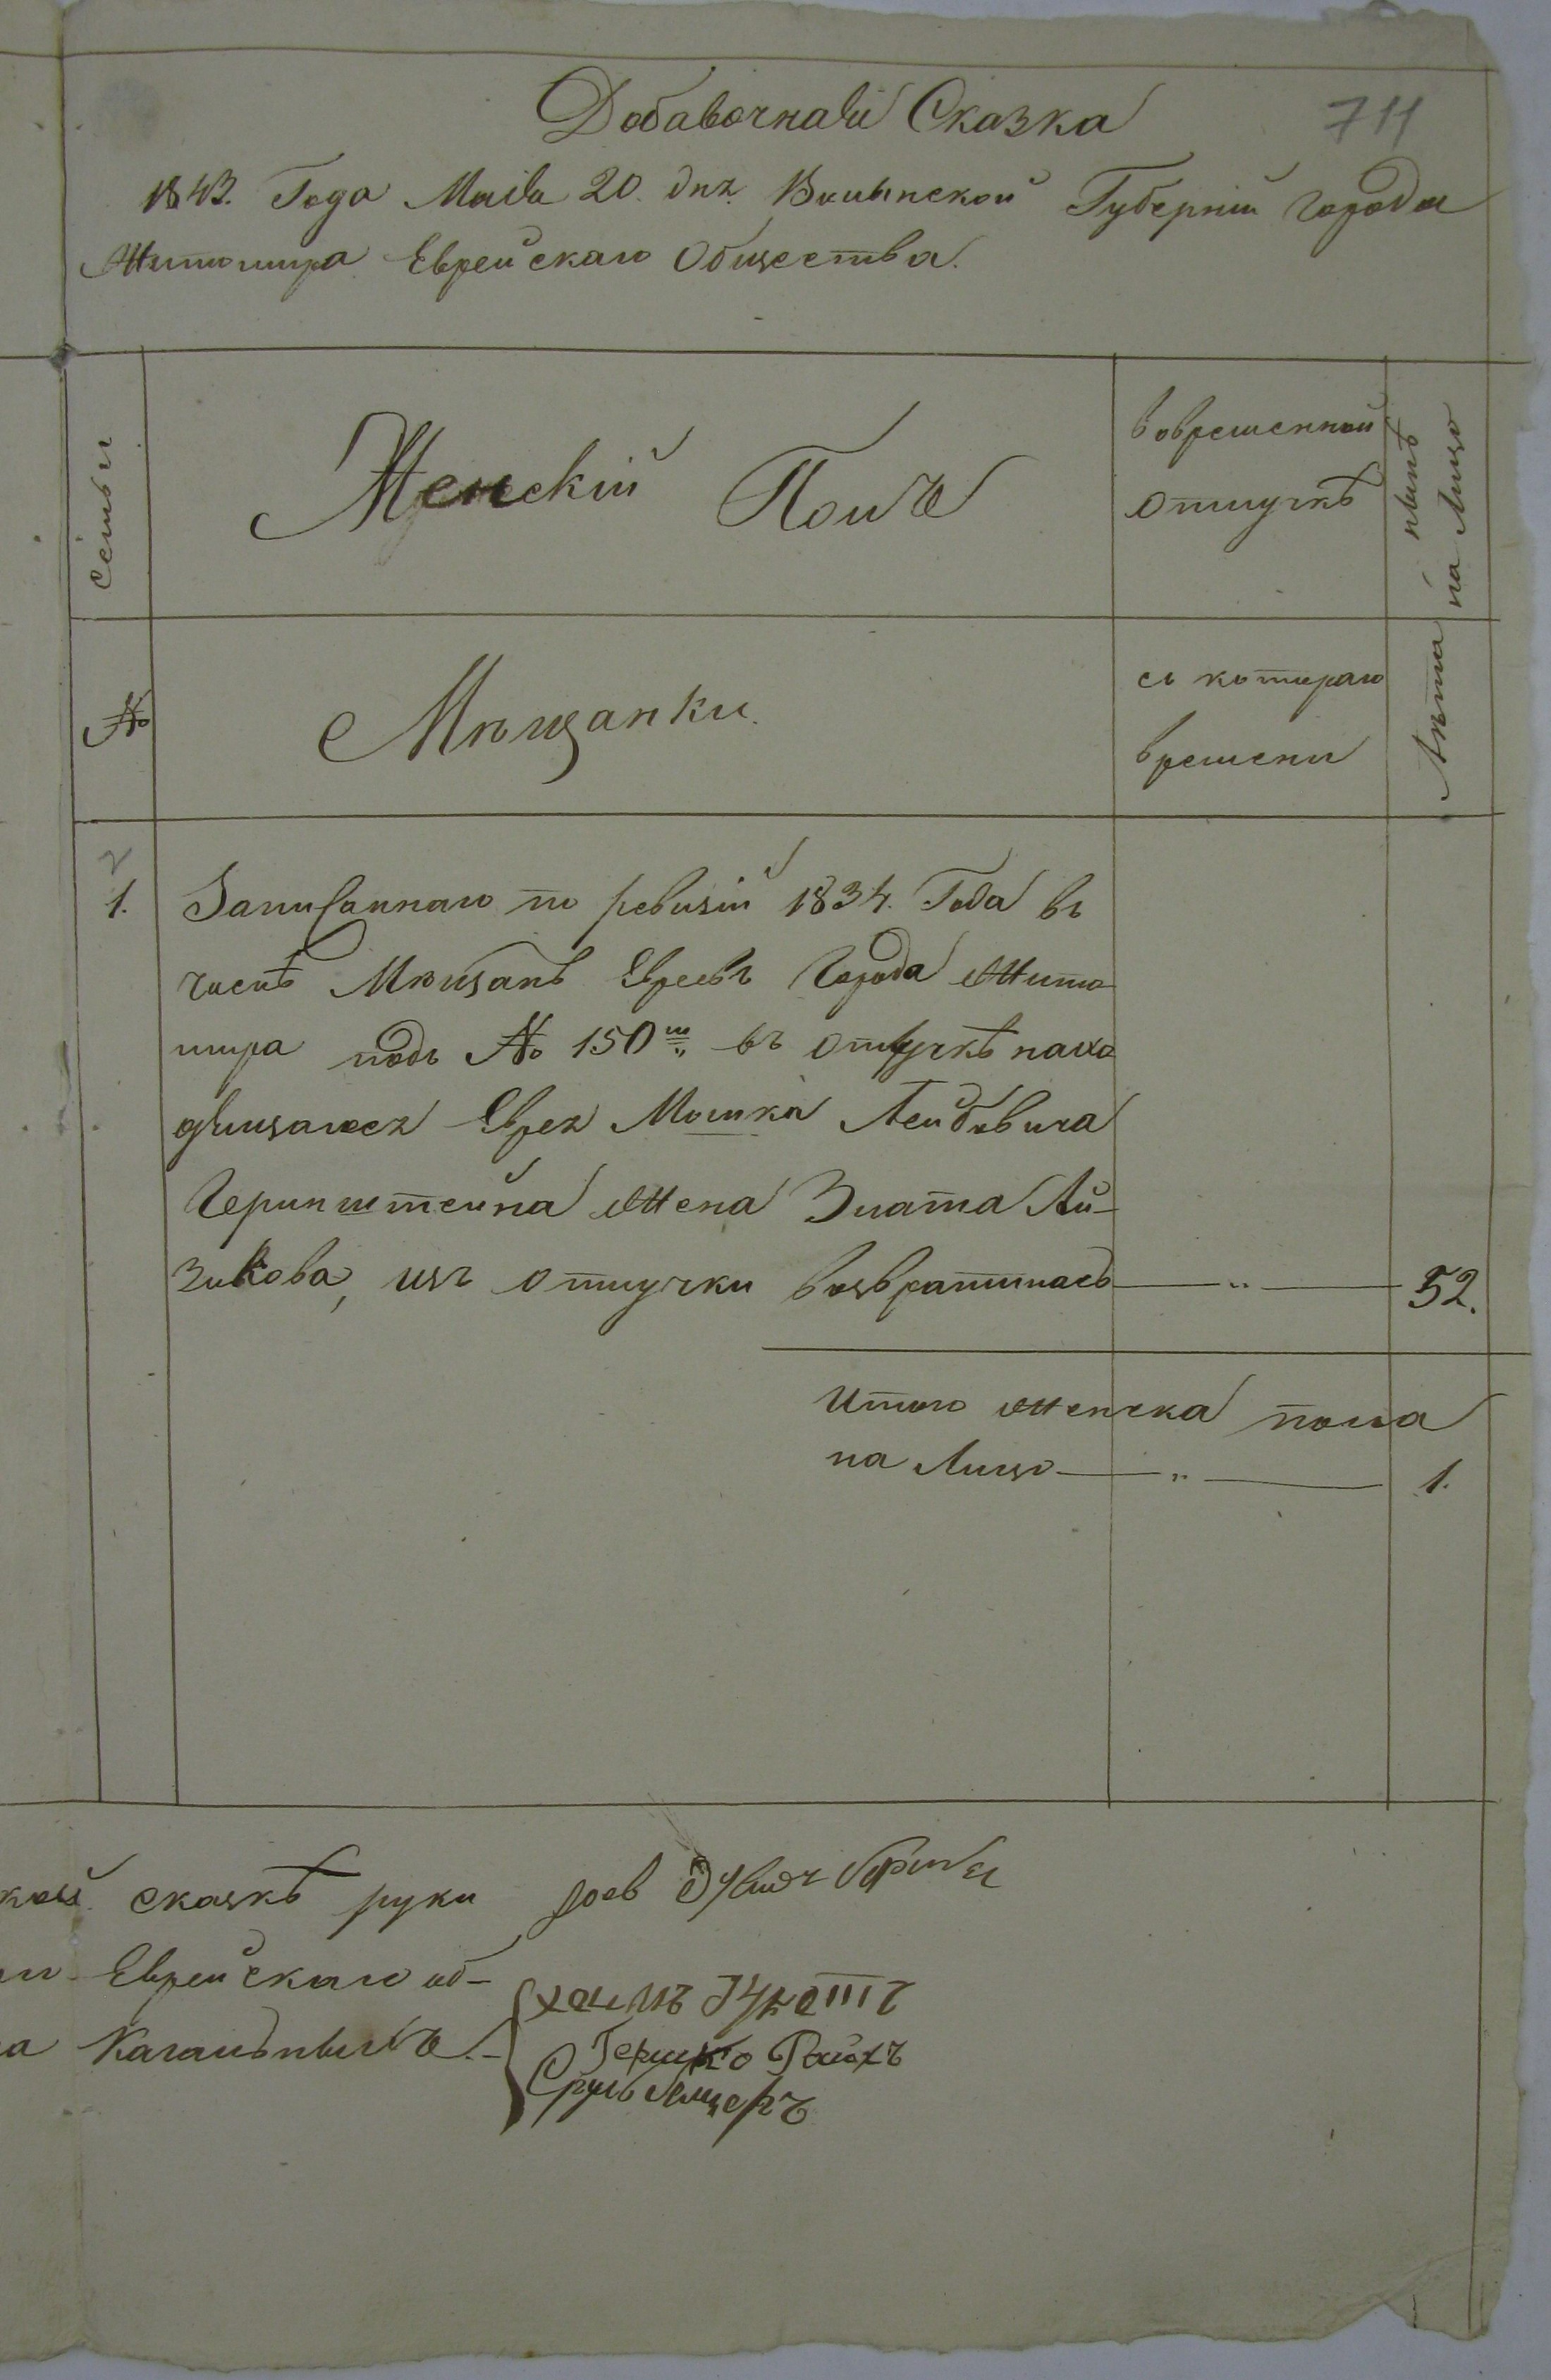 Добавочная Сказка
711
1843. Года Маия 20. дня. Волынской Губерніи города
Житомира Еврейскаго Общества.
семьи
Женскій Полъ
вовременной
отлучкѣ
Лѣта нынѣ
на Лицо
№
Мѣщанки.
съ котораго
времени
1.
Записаннаго по ревизіи 1834. Года въ
числѣ Мѣщанъ Евреевъ Города Жито-
мира подъ № 150м въ отлучкѣ нахо
дящагося Еврея Мошка Лейбовича
Геринштейна Жена Злата Ай-
зикова, изъ отлучки возвратилась — „ — 52.
Итого женска пола
на Лицо — „ — 1.
сказкѣ руки
Еврейскаго об-
Кагальныхъ.
хаимъ
Гершко Райхъ
Сруль